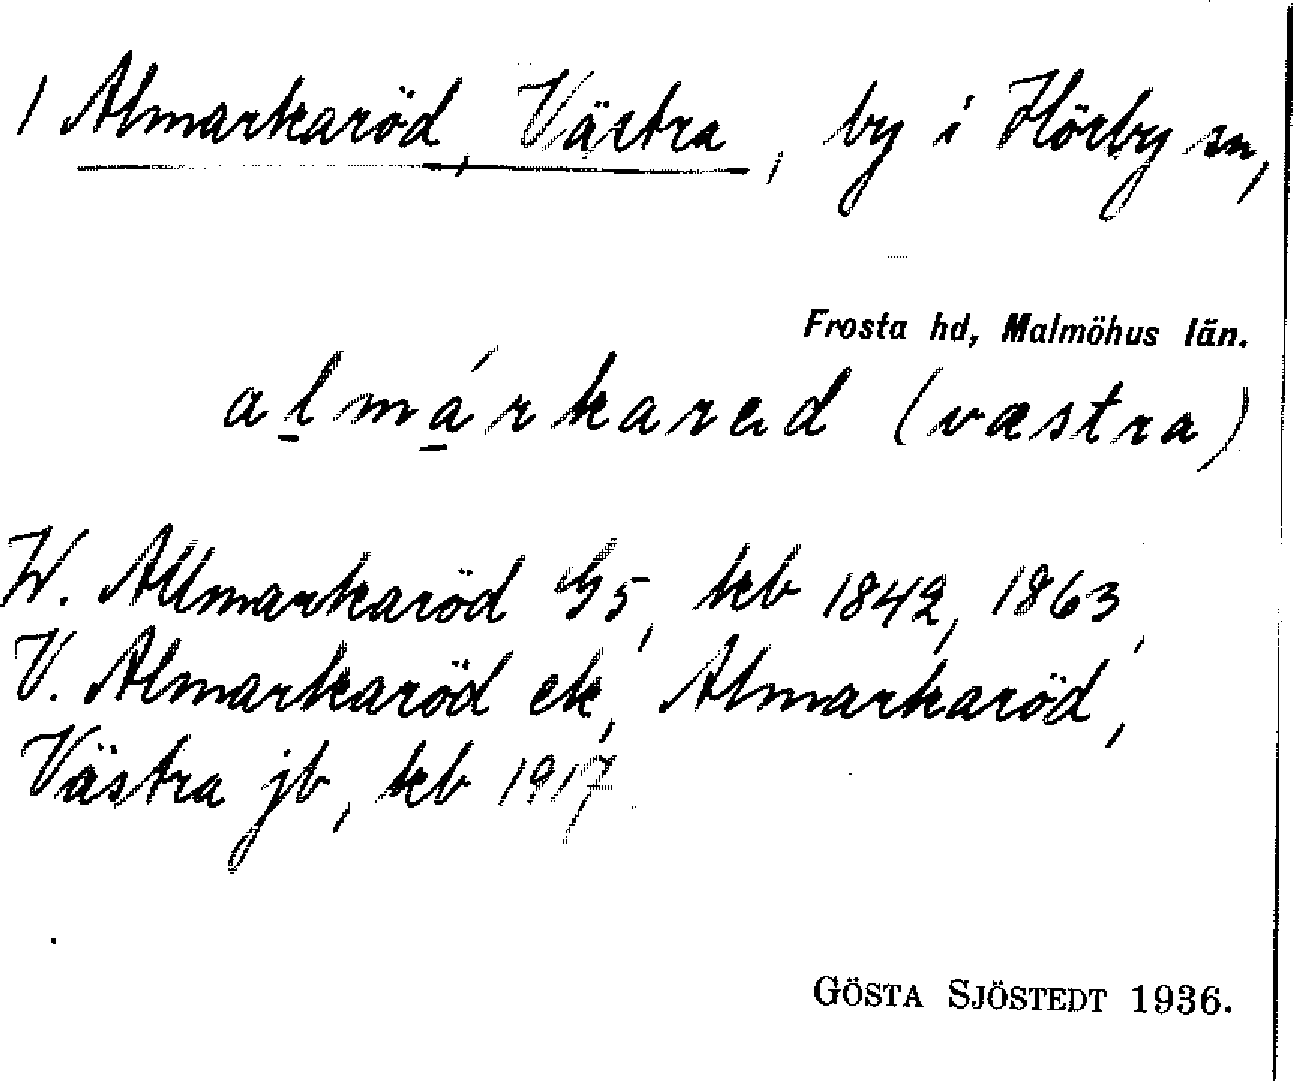 1 Almarkaröd, Västra, by i Hörby sn,
Frosta hd, Malmöhus län.
almárkared (væstra)
W. Allmarkaröd G5, kb 1842, 1863,
V. Almarkaröd ek, Almarkaröd,
Västra jb, kb 1917
GÖSTA SJÖSTEDT 1936.